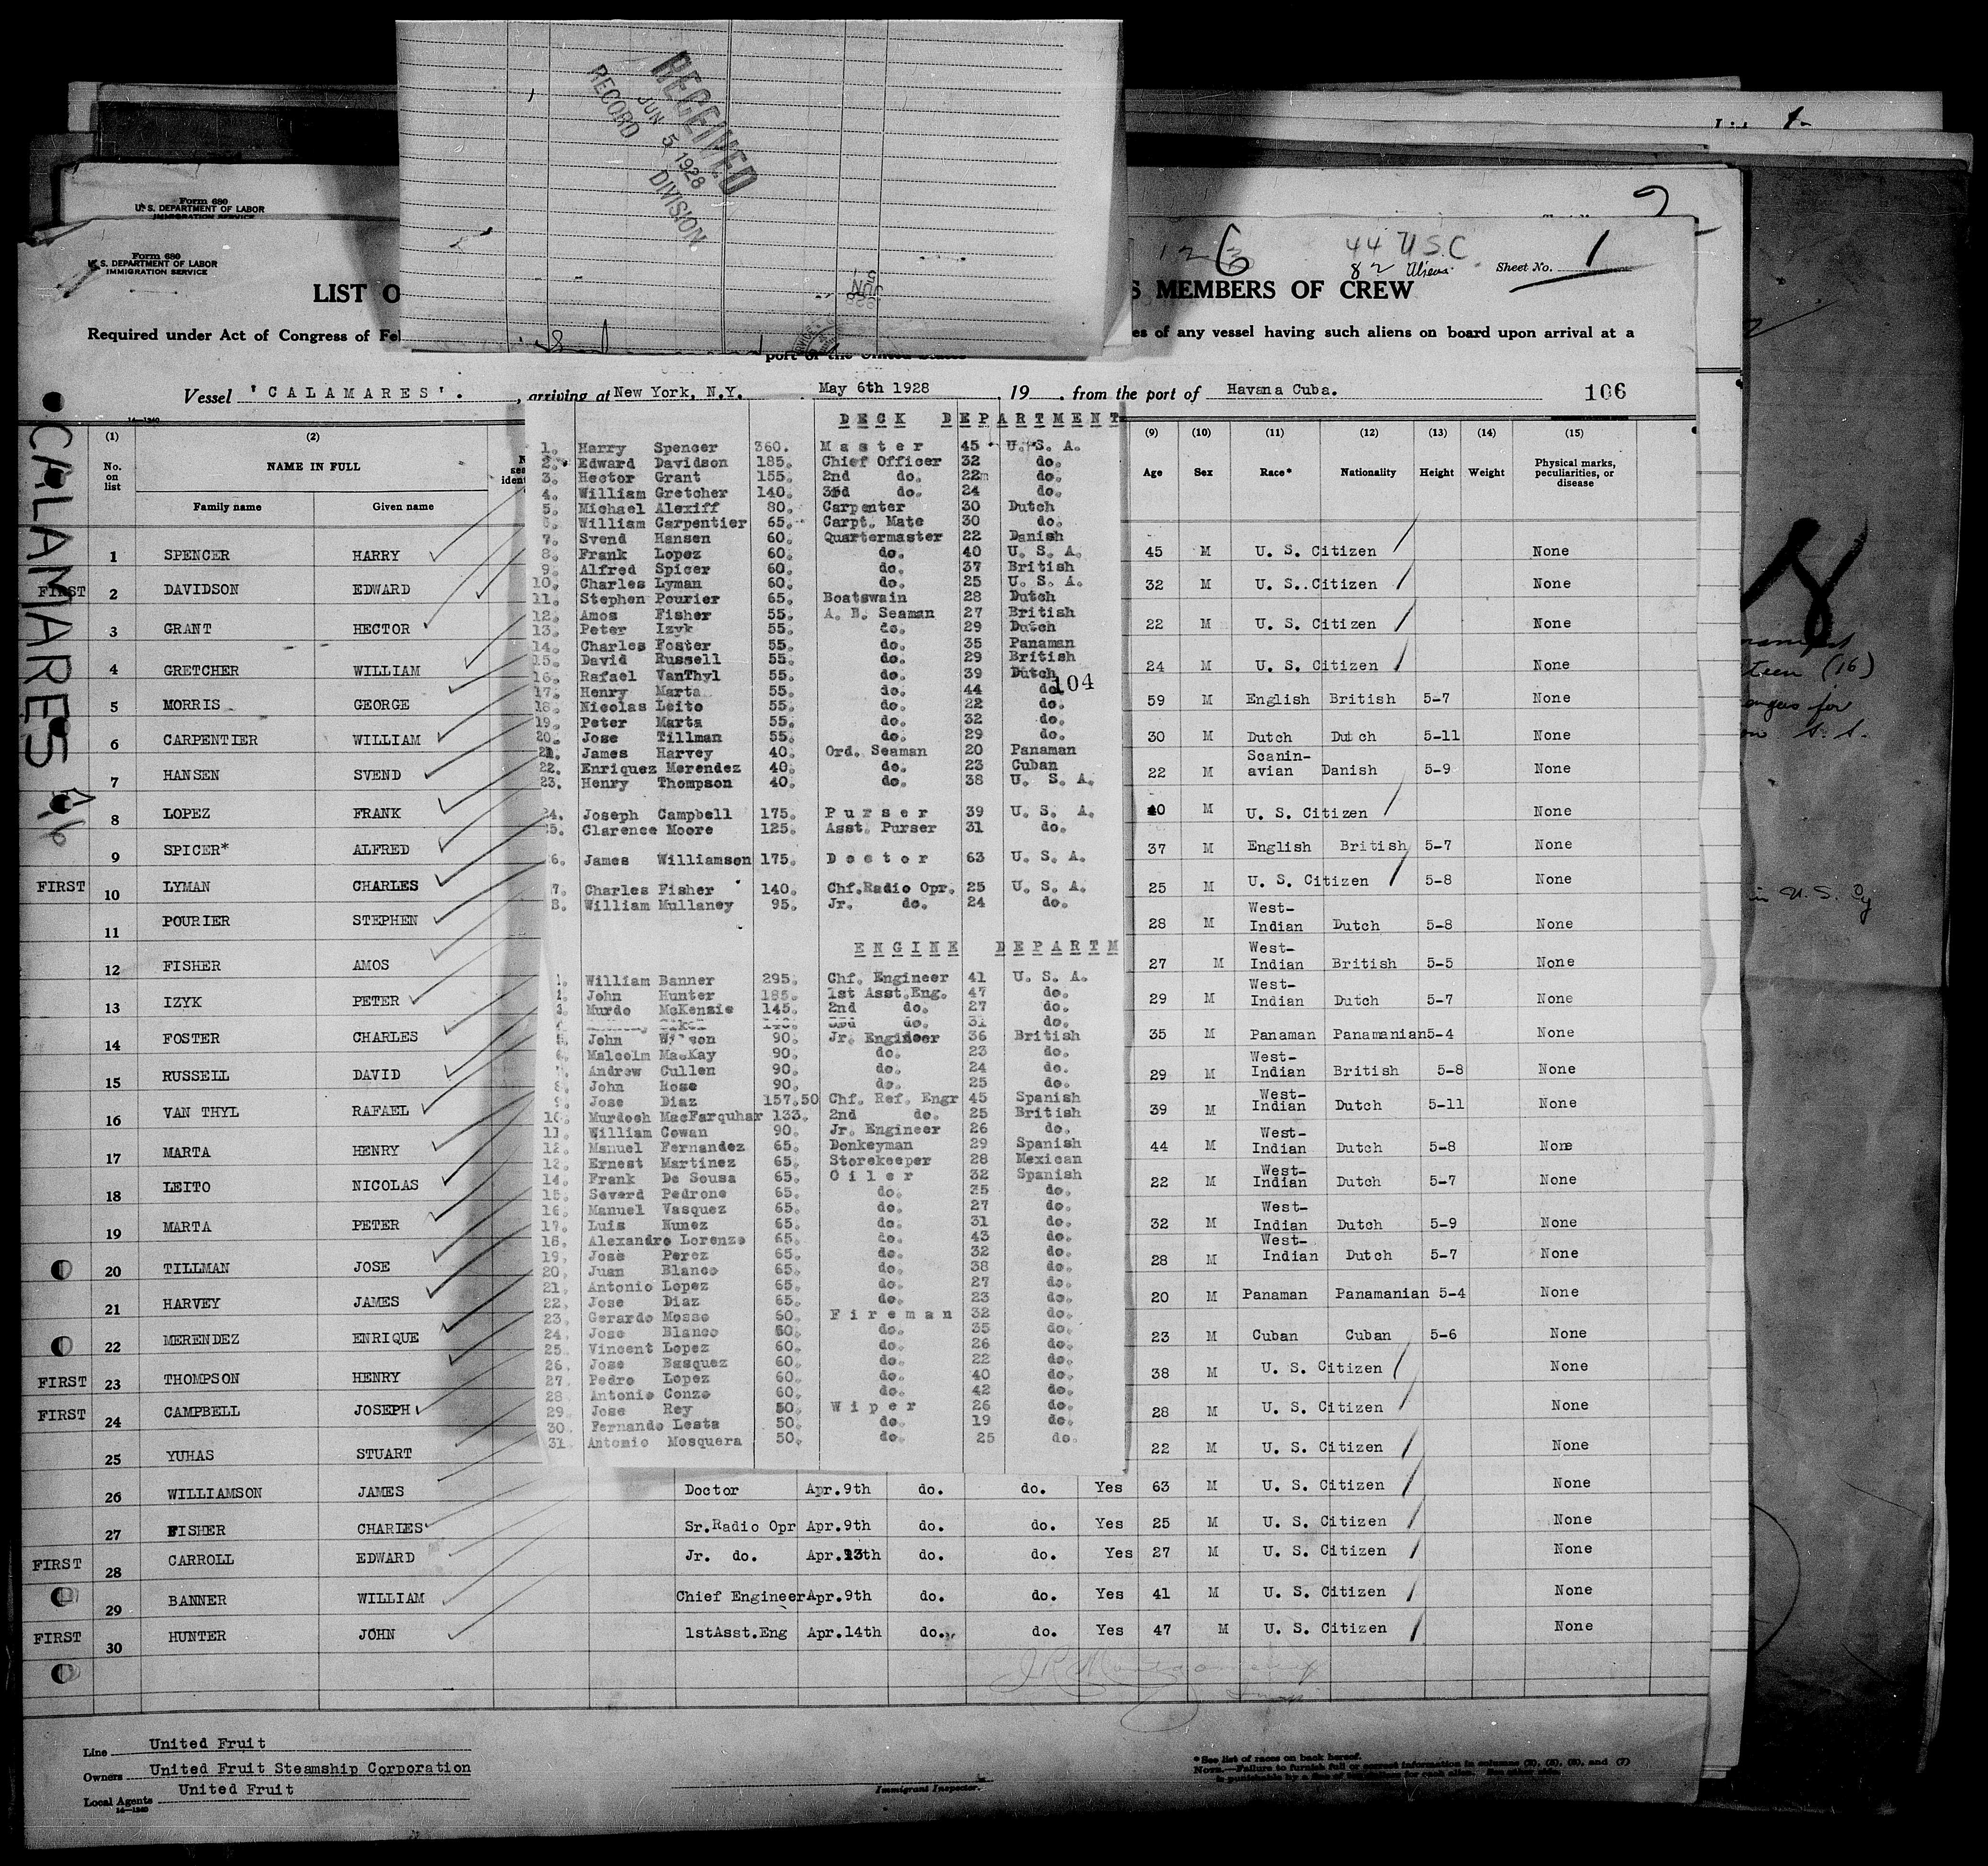 RECEIVED
JUN 5 1928
RECORD DIVISION
JUN 5
Form 680
U. S. DEPARTMENT OF LABOR
IMMIGRATION SERVICE
Form 680
U. S. DEPARTMENT OF LABOR
IMMIGRATION SERVICE
126
44 U.S.C.
82 Aliens.
Sheet No. 1
LIST O S MEMBERS OF CREW
Required under Act of Congress of Fe es of any vessel having such aliens on board upon arrival at a
port of the United States
Vessel 'CALAMARES'. , arriving at New York, N.Y. May 6th 1928 , 19 . from the port of Havana Cuba. 106
CALAMARES
DECK DEPARTMENT
1. Harry Spencer 360. Master 45 U. S. A.
2. Edward Davidson 185. Chief Officer 32 do.
3. Hector Grant 155. 2nd do. 22 do.
4. William Gretcher 140. 3rd do. 24 do.
5. Michael Alexiff 80. Carpenter 30 Dutch
6. William Carpentier 65. Carpt. Mate 30 do.
7. Svend Hansen 60. Quartermaster 22 Danish
8. Frank Lopez 60. do. 40 U. S. A.
9. Alfred Spicer 60. do. 37 British
10. Charles Lyman 60. do. 25 U. S. A.
11. Stephen Pourier 65. Boatswain 28 Dutch
12. Amos Fisher 55. A. B. Seaman 27 British
13. Peter Izyk 55. do. 29 Dutch
14. Charles Foster 55. do. 35 Panaman
15. David Russell 55. do. 29 British
16. Rafael VanThyl 55. do. 39 Dutch
104
17. Henry Marta 55. do. 44 do.
18. Nicolas Leito 55. do. 22 do.
19. Peter Marta 55. do. 32 do.
20. Jose Tillman 55. do. 29 do.
21. James Harvey 40. Ord. Seaman 20 Panaman
22. Enriquez Merendez 40. do. 23 Cuban
23. Henry Thompson 40. do. 38 U. S. A.
24. Joseph Campbell 175. Purser 39 U. S. A.
25. Clarence Moore 125. Asst. Purser 31 do.
6. James Williamson 175. Doctor 63 U. S. A.
7. Charles Fisher 140. Chf.Radio Opr. 25 U. S. A.
8. William Mullaney 95. Jr. do. 24 do.
ENGINE DEPARTM
1. William Banner 295. Chf. Engineer 41 U. S. A.
2. John Hunter 185. 1st Asst.Eng. 47 do.
3. Murdo McKenzie 145. 2nd do. 27 do.
4. 140. 3rd do. 31 do.
5. John 90. Jr. Engineer 36 British
6. Malcolm MacKay 90. do. 23 do.
7. Andrew Cullen 90. do. 24 do.
8. John Rose 90. do. 25 do.
9. Jose Diaz 157.50 Chf. Ref. Engr 45 Spanish
10. Murdoch MacFarquhar 133. 2nd do. 25 British
11. William Cowan 90. Jr. Engineer 26 do.
12. Manuel Fernandez 65. Donkeyman 29 Spanish
13. Ernest Martinez 65. Storekeeper 28 Mexican
14. Frank De Sousa 65. Oiler 32 Spanish
15. Severd Pedrone 65. do. 35 do.
16. Manuel Vasquez 65. do. 27 do.
17. Luis Nunez 65. do. 31 do.
18. Alexandro Lorenzo 65. do. 43 do.
19. Jose Perez 65. do. 32 do.
20. Juan Blanco 65. do. 38 do.
21. Antonio Lopez 65. do. 27 do.
22. Jose Diaz 65. do. 23 do.
23. Gerardo Mosso 60. Fireman 32 do.
24. Jose Blanco 60. do. 35 do.
25. Vincent Lopez 60. do. 26 do.
26. Jose Basquez 60. do. 22 do.
27. Pedro Lopez 60. do. 40 do.
28. Antonio Conzo 60. do. 42 do.
29. Jose Rey 50. Wiper 26 do.
30. Fernando Lesta 50. do. 19 do.
31. Antonio Mosquera 50. do. 25 do.
(1) (2) (9) (10) (11) (12) (13) (14) (15)
No. on list NAME IN FULL Age Sex Race* Nationality Height Weight Physical marks, peculiarities, or disease
Family name Given name
1 SPENCER HARRY 45 M U. S. Citizen None
FIRST 2 DAVIDSON EDWARD 32 M U. S. Citizen None
3 GRANT HECTOR 22 M U. S. Citizen None
4 GRETCHER WILLIAM 24 M U. S. Citizen None
5 MORRIS GEORGE 59 M English British 5-7 None
6 CARPENTIER WILLIAM 30 M Dutch Dutch 5-11 None
7 HANSEN SVEND 22 M Scanin-avian Danish 5-9 None
8 LOPEZ FRANK 40 M U. S. Citizen None
9 SPICER* ALFRED 37 M English British 5-7 None
FIRST 10 LYMAN CHARLES 25 M U. S. Citizen 5-8 None
11 POURIER STEPHEN 28 M West-Indian Dutch 5-8 None
12 FISHER AMOS 27 M West-Indian British 5-5 None
13 IZYK PETER 29 M West-Indian Dutch 5-7 None
14 FOSTER CHARLES 35 M Panaman Panamanian 5-4 None
15 RUSSELL DAVID 29 M West-Indian British 5-8 None
16 VAN THYL RAFAEL 39 M West-Indian Dutch 5-11 None
17 MARTA HENRY 44 M West-Indian Dutch 5-8 None
18 LEITO NICOLAS 22 M West-Indian Dutch 5-7 None
19 MARTA PETER 32 M West-Indian Dutch 5-9 None
20 TILLMAN JOSE 28 M West-Indian Dutch 5-7 None
21 HARVEY JAMES 20 M Panaman Panamanian 5-4 None
22 MERENDEZ ENRIQUE 23 M Cuban Cuban 5-6 None
FIRST 23 THOMPSON HENRY 38 M U. S. Citizen None
FIRST 24 CAMPBELL JOSEPH 28 M U. S. Citizen None
25 YUHAS STUART 22 M U. S. Citizen None
26 WILLIAMSON JAMES Doctor Apr.9th do. do. Yes 63 M U. S. Citizen None
27 FISHER CHARLES Sr.Radio Opr Apr.9th do. do. Yes 25 M U. S. Citizen None
FIRST 28 CARROLL EDWARD Jr. do. Apr.13th do. do. Yes 27 M U. S. Citizen None
29 BANNER WILLIAM Chief Engineer Apr.9th do. do. Yes 41 M U. S. Citizen None
FIRST 30 HUNTER JOHN 1stAsst.Eng Apr.14th do. do. Yes 47 M U. S. Citizen None
Line United Fruit
Owners United Fruit Steamship Corporation
Local Agents United Fruit
14—1240
Immigrant Inspector.
* See list of races on back hereof.
NOTE.—Failure to furnish full or correct information in columns (2), (5), (6), and (7)
is punishable by a fine of ten dollars for each alien. See other side.
teen (16)
in U. S.